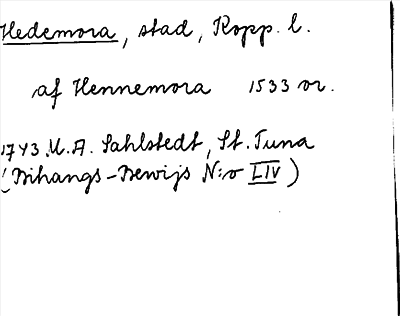 Hedemora, stad, Kopp. l.
af Hennemora 1533 or.
1743. U. A. Sahlstedt, St. Tuna
(Bihangs-Bewijs N:o LIV)